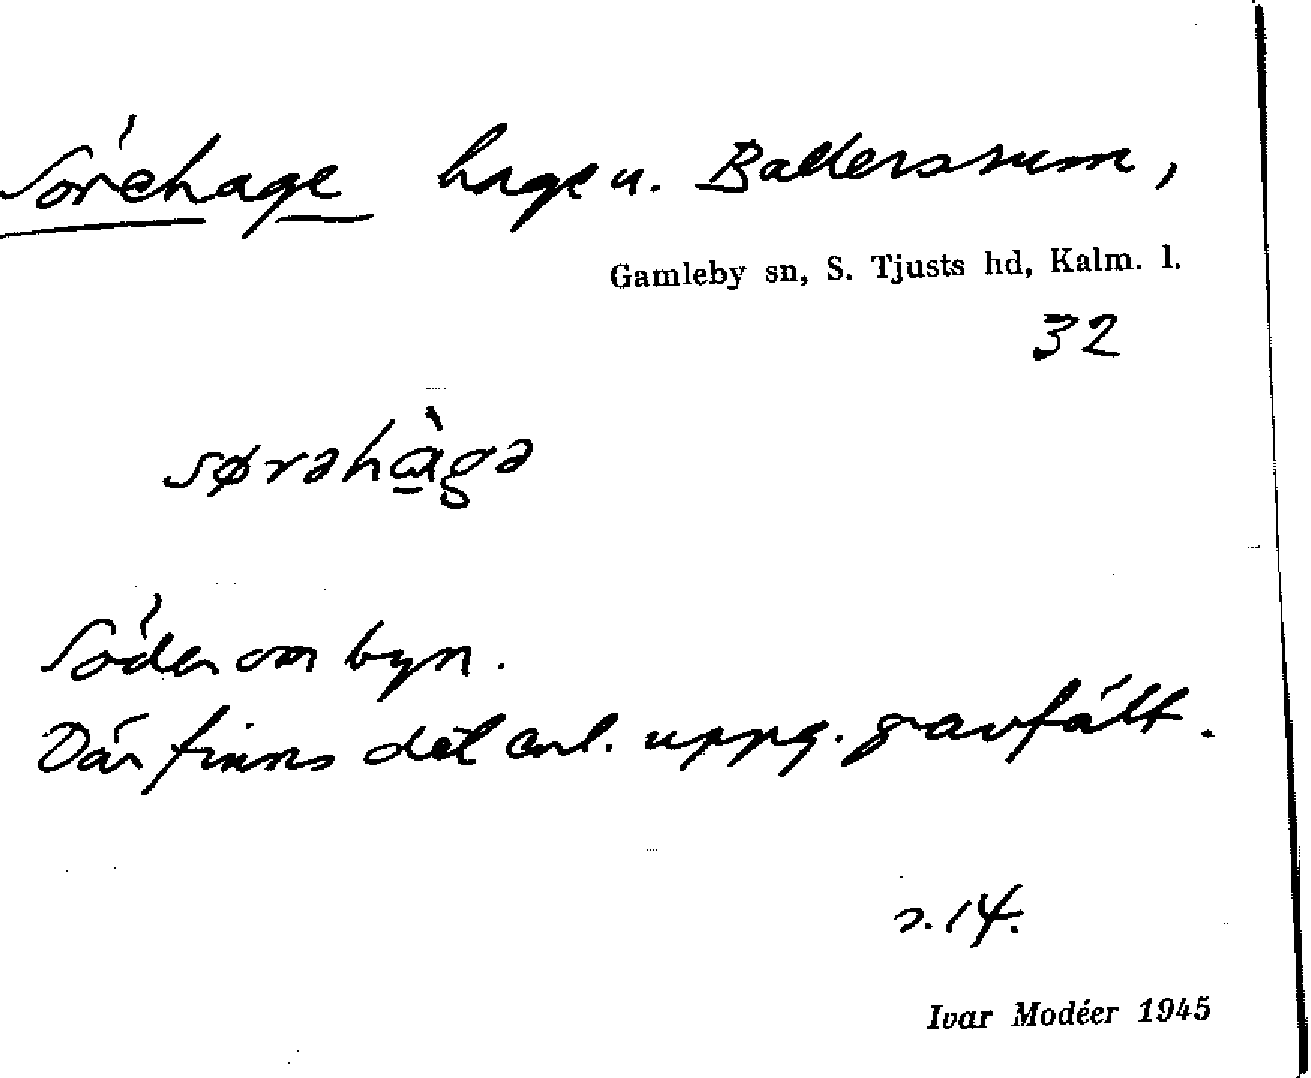 Sörehage hage u. Ballersrum,
Gamleby sn, S. Tjusts hd, Kalm. l.
32
sørəhàgə
Söder om byn.
Där finns det enl. uppg. gravfält.
s. 14.
Ivar Modéer 1945